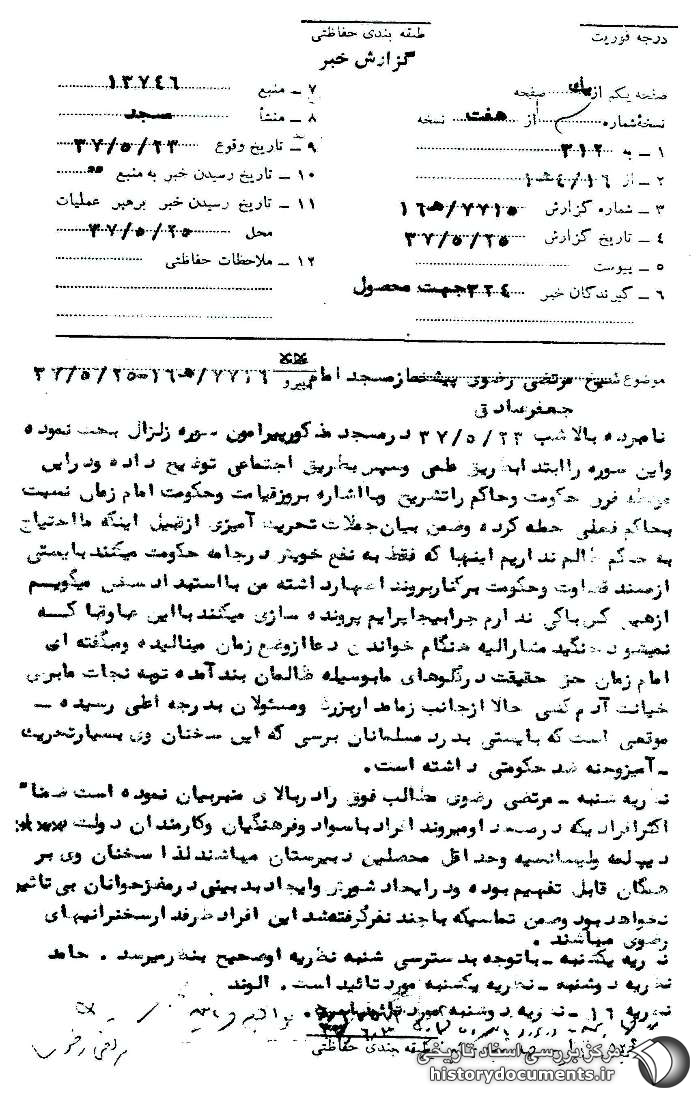 درجه فوریت
طبقه بندی حفاظتی
گزارش خبر
صفحه یکم از صفحه
نسخه شماره از هفت نسخه
۱ ـ به ۳۱۲
۲ ـ از ۱۶/ه‍ ۱
۳ ـ شماره گزارش ۷۷۱۵/ه‍ ۱۶
۴ ـ تاریخ گزارش ۳۷/۵/۲۵
۵ ـ پیوست
۶ ـ گیرندگان خبر ۳۲۴ جهت محصول
۷ ـ منبع ۱۳۷۴۶
۸ ـ منشأ مسجد
۹ ـ تاریخ وقوع ۳۷/۵/۲۳
۱۰ ـ تاریخ رسیدن خبر به منبع
۱۱ ـ تاریخ رسیدن خبر برهبر عملیات
محل ۳۷/۵/۲۵
۱۲ ـ ملاحظات حفاظتی
موضوع شیخ مرتضی رضوی پیشنماز مسجد امام پیرو ۷۷۱۶/ه‍ ۱۶ـ۳۷/۵/۲۵
جعفر صادق
نامبرده بالا شب ۳۷/۵/۲۳ در مسجد مذکور پیرامون سوره زلزال بحث نموده
واین سوره را ابتدا بطریق علمی وسپس بطریق اجتماعی توضیح داده ودراین
حکومت وحاکم را تشریح وبا اشاره بروز قیامت وحکومت امام زمان نسبت
بحاکم فعلی حمله کرده وضمن بیان جملات تحریک آمیزی ازقبیل اینکه ما احتیاج
به حاکم ظالم نداریم اینها که فقط به نفع خویش درجامعه حکومت میکنند بایستی
ازمسند قضاوت وحکومت برکنار بروند اظهار داشته من با استبداد سخن میگویم
از کس باکی ندارم چرا بیجا برایم پرونده سازی میکنند با این
نمیشود جنگید مشارالیه هنگام خواندن دعا ازوضع زمان مینالیده ومیگفته ای
امام زمان حق حقیقت درگلوهای ما بوسیله ظالمان بند آمده
خیانت آدم کشی حالا ازجانب زمامداران ومسئولان بدرجه اعلی رسیده ـ
موقعی است که بایستی بدرد مسلمانان برسی که این سخنان وی بسیار تحریک
ـ آمیز وجنبه ضد حکومتی داشته است .
نظریه شنبه ـ مرتضی رضوی مطالب فوق را دربالای منبر بیان نموده است ضمنا"
اکثر افرادیکه درمسجد او میروند افراد باسواد وفرهنگیان وکارمندان دولت
دیپلمه ولیسانسیه وحداقل محصلین دبیرستان میباشند لذا سخنان وی بر
همگان قابل تفهیم بوده ودرایجاد شورش وایجاد بدبینی درمغز جوانان بی تاثیر
نخواهد بود وضمن تماسیکه با چند نفر گرفته شد این افراد طرفدار سخنرانیهای
رضوی میباشند .
نظریه یکشنبه ـ با توجه بدسترسی شنبه نظریه او صحیح بنظر میرسد . حامد
نظریه دوشنبه ـ نظریه یکشنبه مورد تائید است . الوند
نظریه ۱۶ ـ نظریه دوشنبه مورد تائید
طبقه بندی حفاظتی
مرکز بررسی اسناد تاریخی
historydocuments.ir